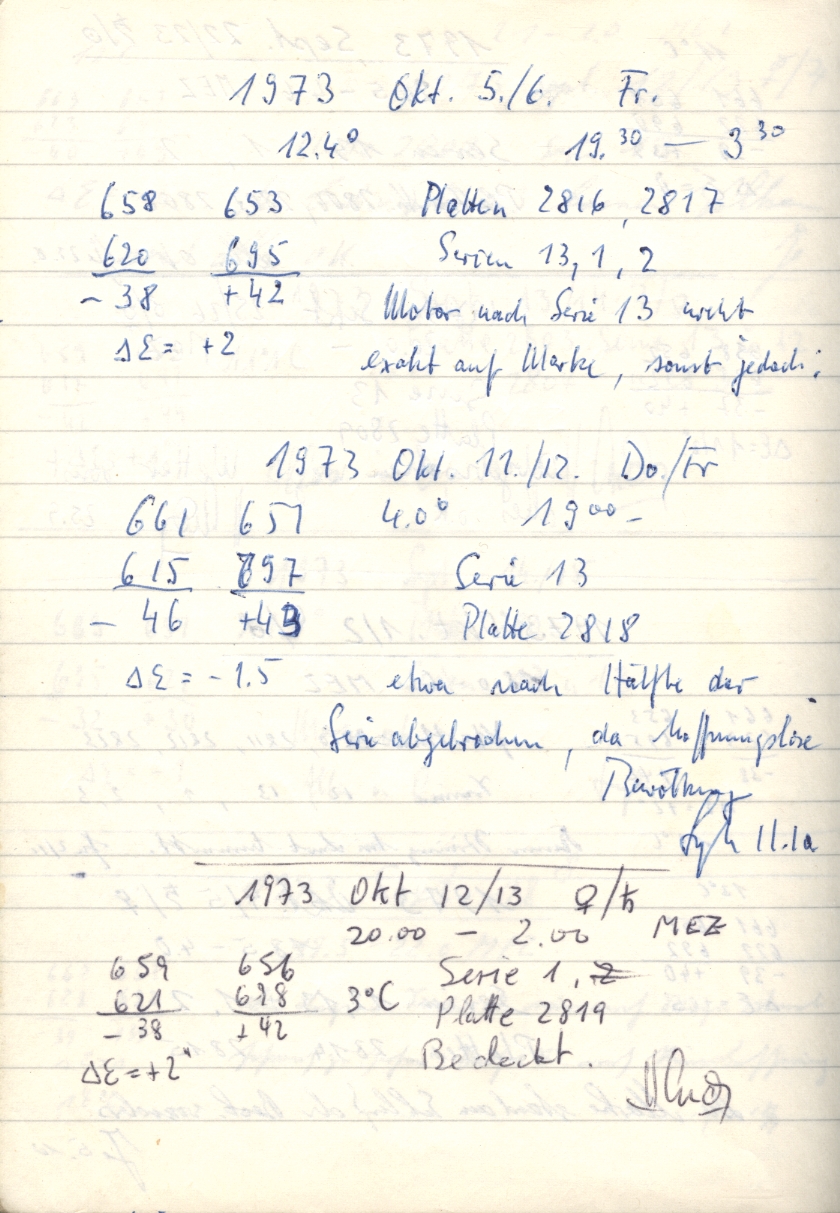 1973 Okt. 5./6. Fr.
12.4° 19.30 — 3 30
658 653 Platten 2816, 2817
620 695 Serien 13, 1, 2
- 38 + 42 Motor nach Serie 13 nicht
ΔƐ = +2 exakt auf Marke, sonst jedoch:
1973 Okt. 11./12. Do./Fr
661 651 4.0° 19 00 -
615 697 Serie 13
- 46 +43 Platte 2818
ΔƐ = - 1.5 etwa nach Hälfte der
Serie abgebrochen, da hoffnungslose
Bewölkung
1973 Okt 12/13 ♀/♄
20.00 — 2.00 MEZ
659 656 Serie 1, 2
621 698 3°C Platte 2819
- 38 + 42 Bedeckt.
ΔƐ = +2"